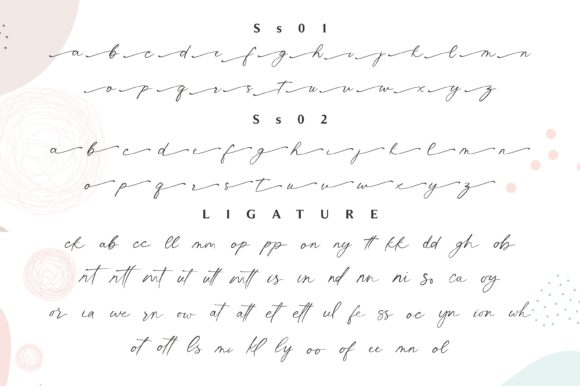 Ss01
a b c d e f g h i j k l m n
o p q r s t u v w x y z
Ss02
a b c d e f g h i j k l m n
o p q r s t u v w x y z
LIGATURE
ck ab cc ll mm op pp on ny tt kk dd gh ob
nt ntt mt ut utt mtt is in nd nn ni so ca oy
or ia we rn ow at att et ett ul fe ss oc yn ion wh
ot ott ls mi kl ly oo of ee mn ol